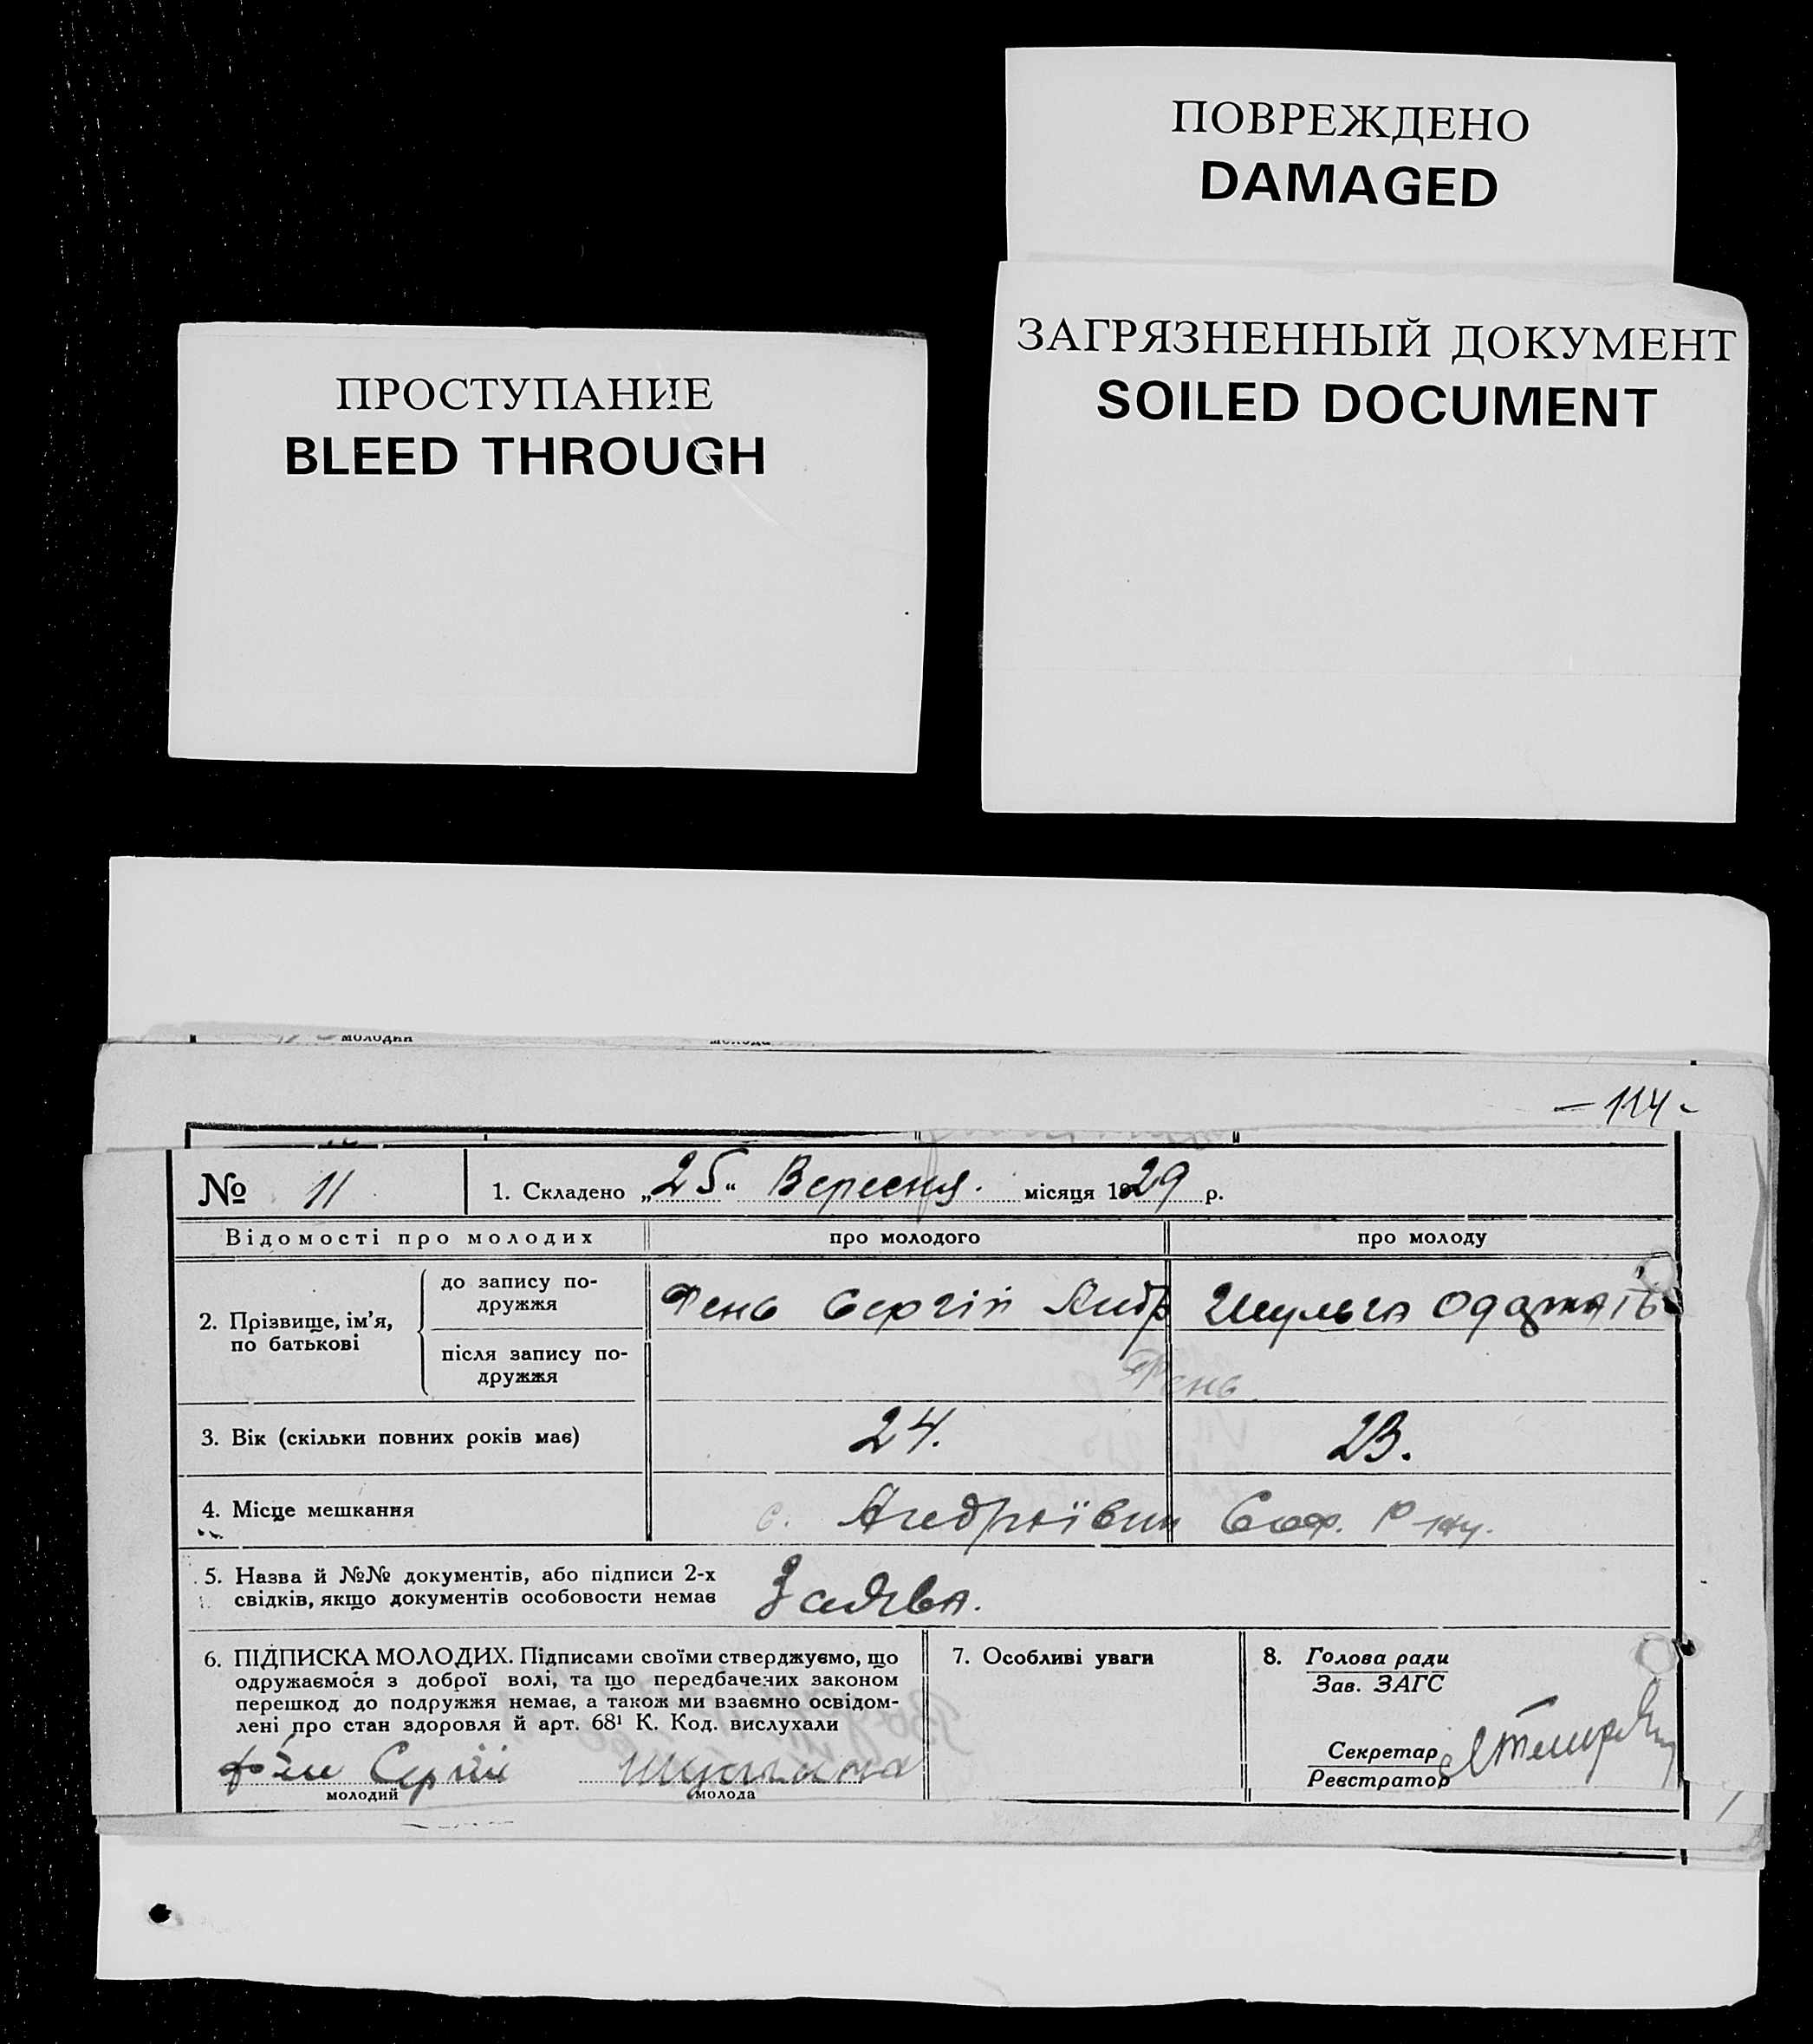 ПОВРЕЖДЕНО
DAMAGED
ЗАГРЯЗНЕННЫЙ ДОКУМЕНТ
SOILED DOCUMENT
ПРОСТУПАНИЕ
BLEED THROUGH
молодий молода
– 114 -
№ 11
1. Складено „25“ Вересня. місяця 1929 р.
Відомості про молодих
про молодого
про молоду
2. Прізвище, ім’я,
по батькові
до запису по-
дружжя
Фень Сергій Андр
Шульга
після запису по-
дружжя
Фень
3. Вік (скільки повних років має)
24.
23.
4. Місце мешкання
с. Андріївки Соф. Р-ну.
5. Назва й №№ документів, або підписи 2-х
свідків, якщо документів особовости немає
Заява.
6. ПІДПИСКА МОЛОДИХ. Підписами своїми стверджуємо, що
одружаємося з доброї волі, та що передбачених законом
перешкод до подружжя немає, а також ми взаємно освідом-
лені про стан здоров'я й арт. 68¹ К. Код. вислухали
Фень Сергій
молодий
молода
7. Особливі уваги
8. Голова ради
Зав. ЗАГС
Секретар
Реєстратор